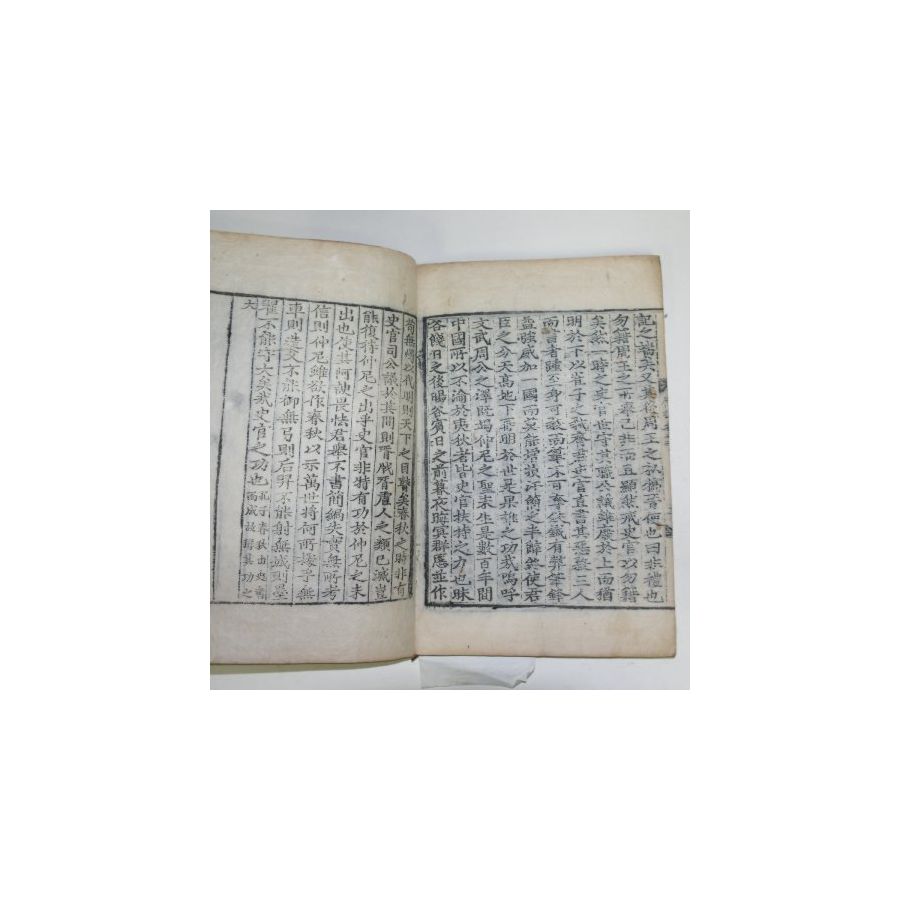 記之端矣又其後周王之私賄晉使也曰非禮也
勿籍周王之所舉己非而且顯然戒史官以勿籍
矣然一時之史官世守其職公議雖廢於上而猶
明於下以崔子之弒齊君史官直書其惡殺三人
而書者踵至身可殺而筆不可奪鈇鉞有弊筆鋒
益強威加一國而莫能增損汗簡之半辭終使君
臣之分天高地下再明於世是果誰之功哉嗚呼
文武周公之澤既竭仲尼之聖未生是數百年間
中國所以不淪於夷狄者皆史官扶持之力也昧
谷餞日之後暘谷賓日之前暮夜晦冥群慝並作
苟無燭以代明則天下之目瞽矣春秋之時非有
史官司公議於其間則胥戕胥虐人之類已滅豈
能復待仲尼之出乎史官非特有功於仲尼之未
出也使其阿諛畏怯君舉不書簡編失實無所考
信則仲尼雖欲作春秋以示萬世將何所據乎無
車則造父不能御無弓則后羿不能射無城則墨
翟不能守大矣哉史官之功也 孔子春秋由史書而成故論其功之
大